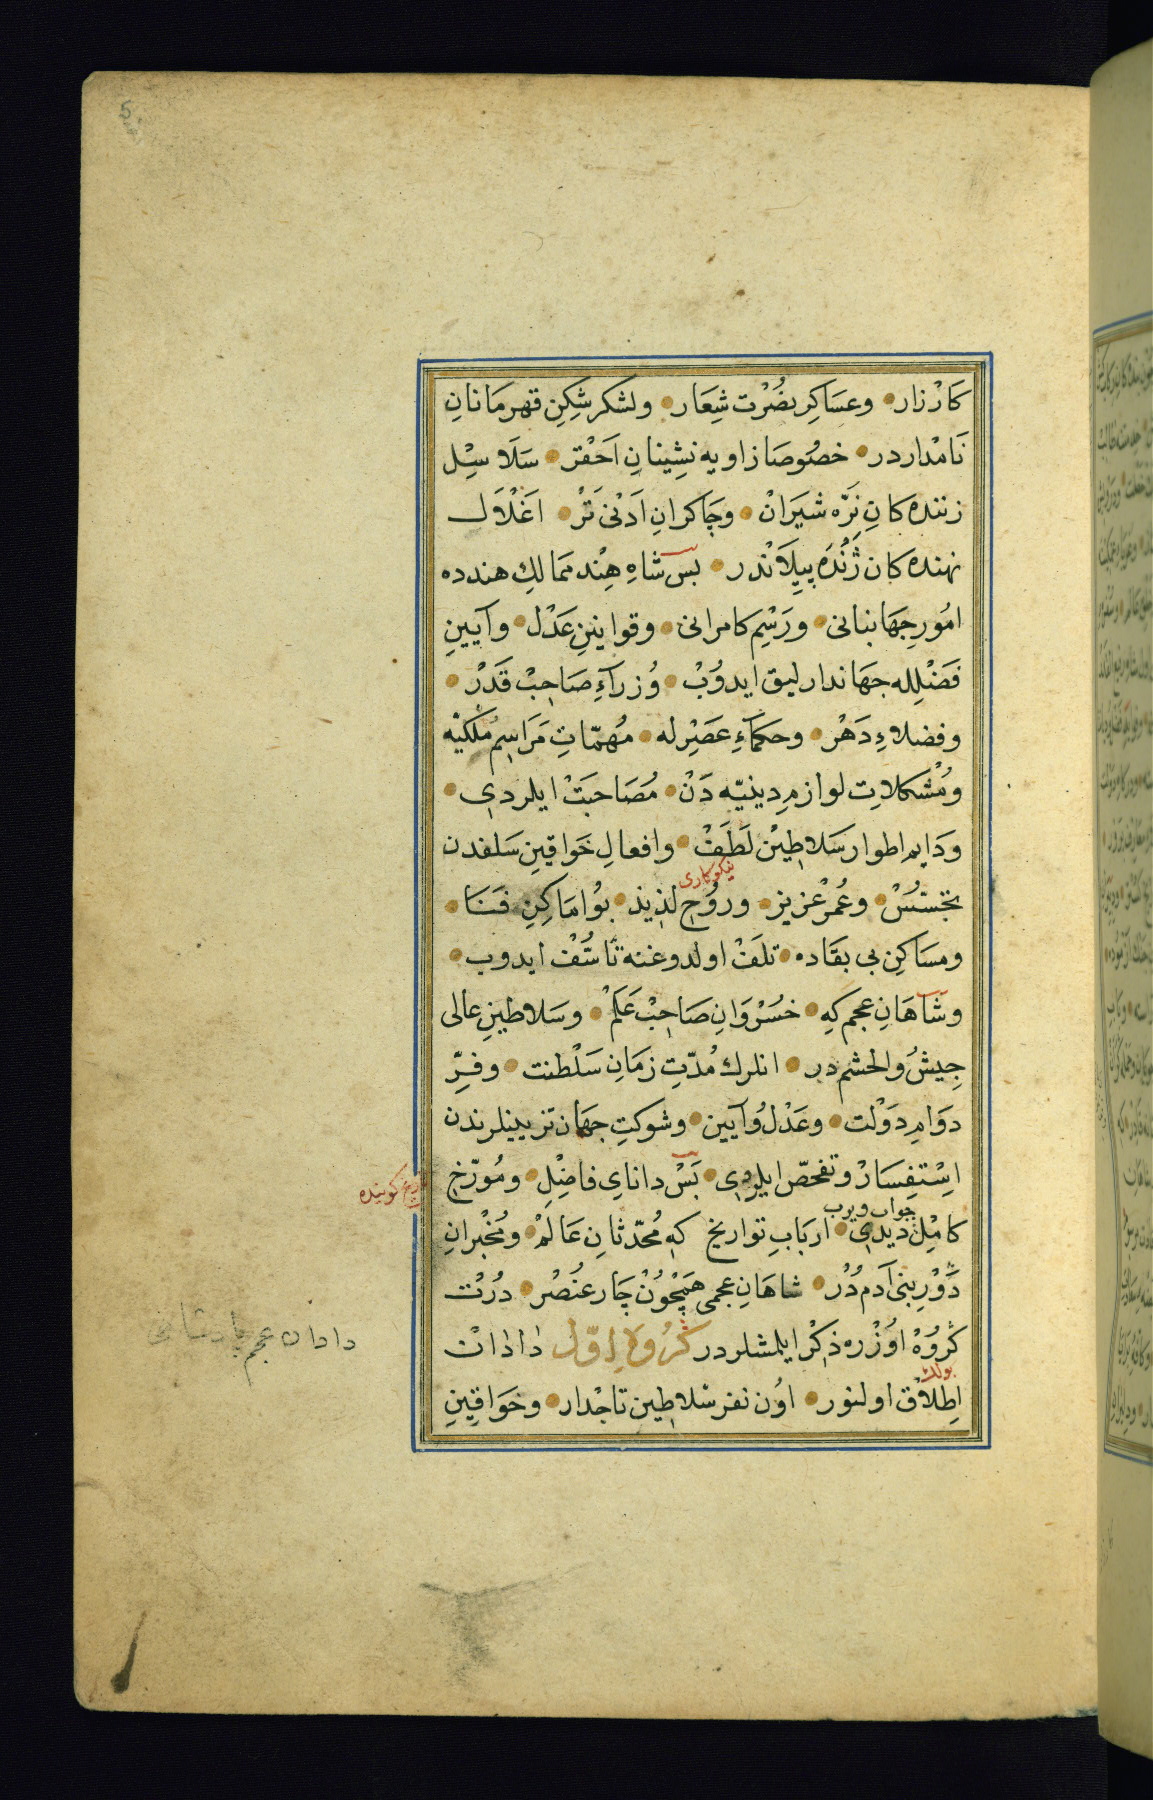 5
كَارْزار وعسَاكِرِ نصُرْت شِعَار ولشكر شِكِنِ قهرمَانانِ
نَامْداردر خصُوصَا زاويه نشِينانِ اَحْقَر سَلَاسِيْل
زننده كانِ نَرّه شيَرانْ وچَاكرانِ اَدْنىٰ تَرْ اَغْلَال
نهنده كان ژَنْدَه پيلَانْدر بسَ شَاهِ هِنْد ممَالكِ هندده
امُورِ جَهَانبانى ورَسْمِ كامرانى وقوانينِ عَدْل وآيينِ
فَضْلِله جهَاندارليق ايدوُبْ وُزرآءِ صَاحِبْ قَدْرْ
وفضلاءِ دَهْر وحكمَآءِ عَصْرِله مُهمّاتِ مَرَاسِمِ مُلْكيّه
ومُشْكلاتِ لوازمِ دِينيّه دَنْ مُصَاحبَتْ ايلردى
ودَايم اطوار سَلاطِيْن لَطَفْ وافعالِ خَواقينِ سَلفدن
تجسّسُسْ وعُمرِ عْزيز وروُحِ لذِيذ بوُ امَاكِنِ فَنَا
نيكوكارى
ومسَاكِنِ بى بقَاده تلَفْ اولدوغنه تأسُّفْ ايدوب
وشَاهَانِ عجم كَهِ خسْرَوَانِ صَاحِبْ عَلَمْ وسَلاطينِ عالى
جِيشُ والحشم در انلرك مُدّتِ زمَانِ سَلْطنت وفرِّ
دوَامِ دَوْلت وعَدْلُ وآيين وشوكتِ جهَان تزيينلرندن
اِسْتِفسَارْ وتفحّص ايلردى بَسْ داناىِ فاضِلِ ومُورّخِ
كوينده
كامِلْ ديدى اربابِ تواريخ كهِ مُحدّثانِ عَالَمْ ومُخْبرانِ
جواب ويرب
دَوْرِ بنىٓ آدمدُرْ شاهَانِ عجمى هَمچُوُنْ چَار عنُصْر دُرْت
كُروُهْ اوُزْره ذكِرْ ايلمشلردر كُروُهِ اوّل دادانْ
اِطِلاقْ اولنور اوُن نفر سَلاطِين تاجْدار وخَوَاقِينِ
بونلر
دادان عجم پادشاهى